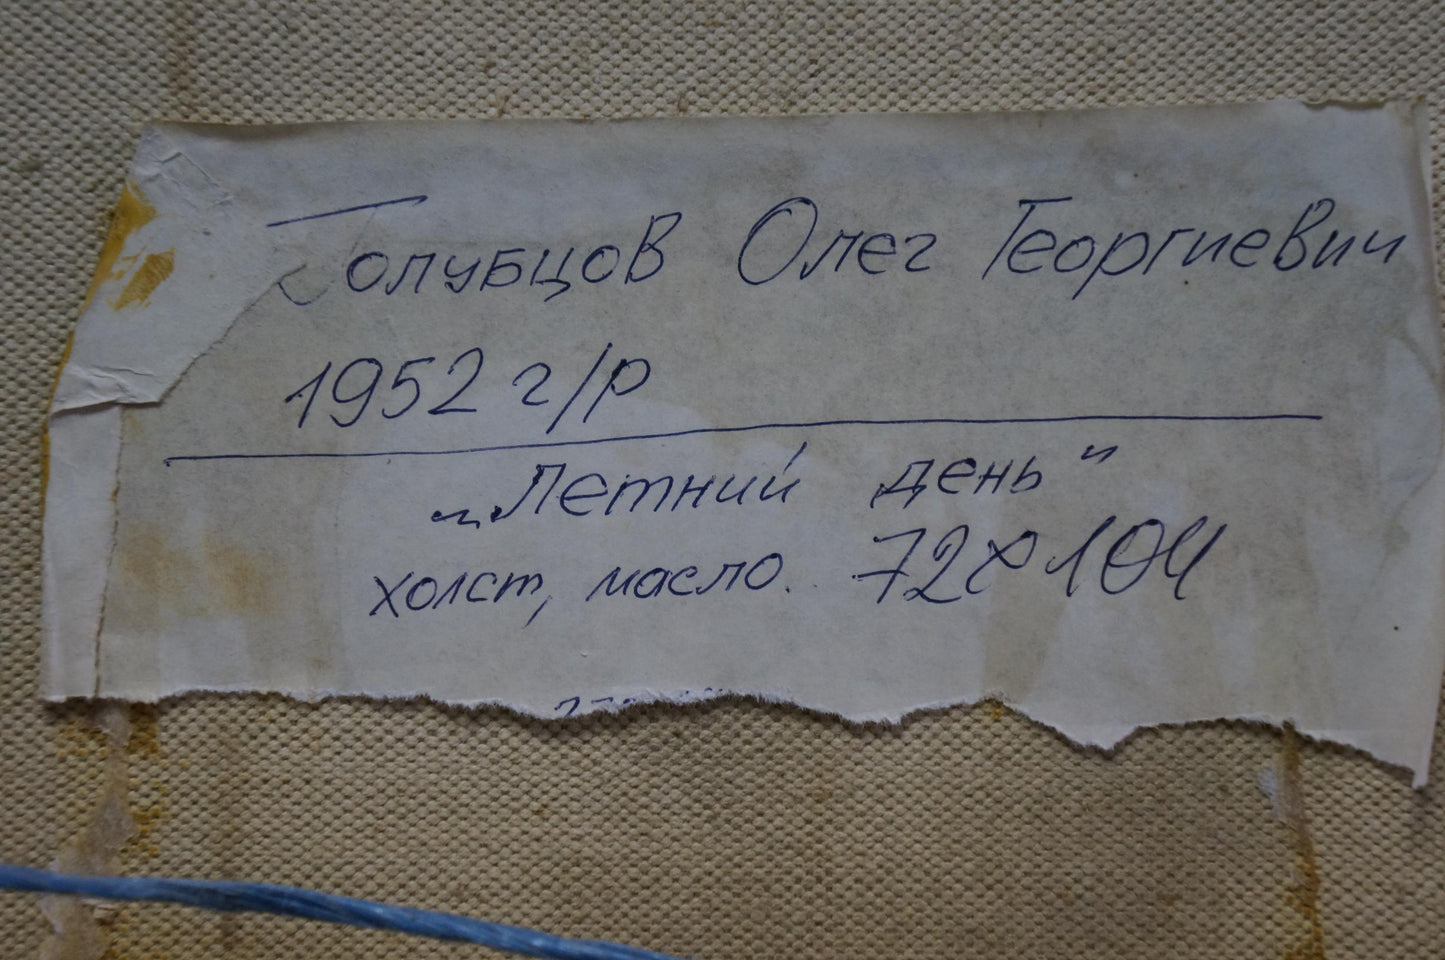 Голубцов Олег Георгиевич
1952 г/р
„Летний день"
холст, масло. 72x104